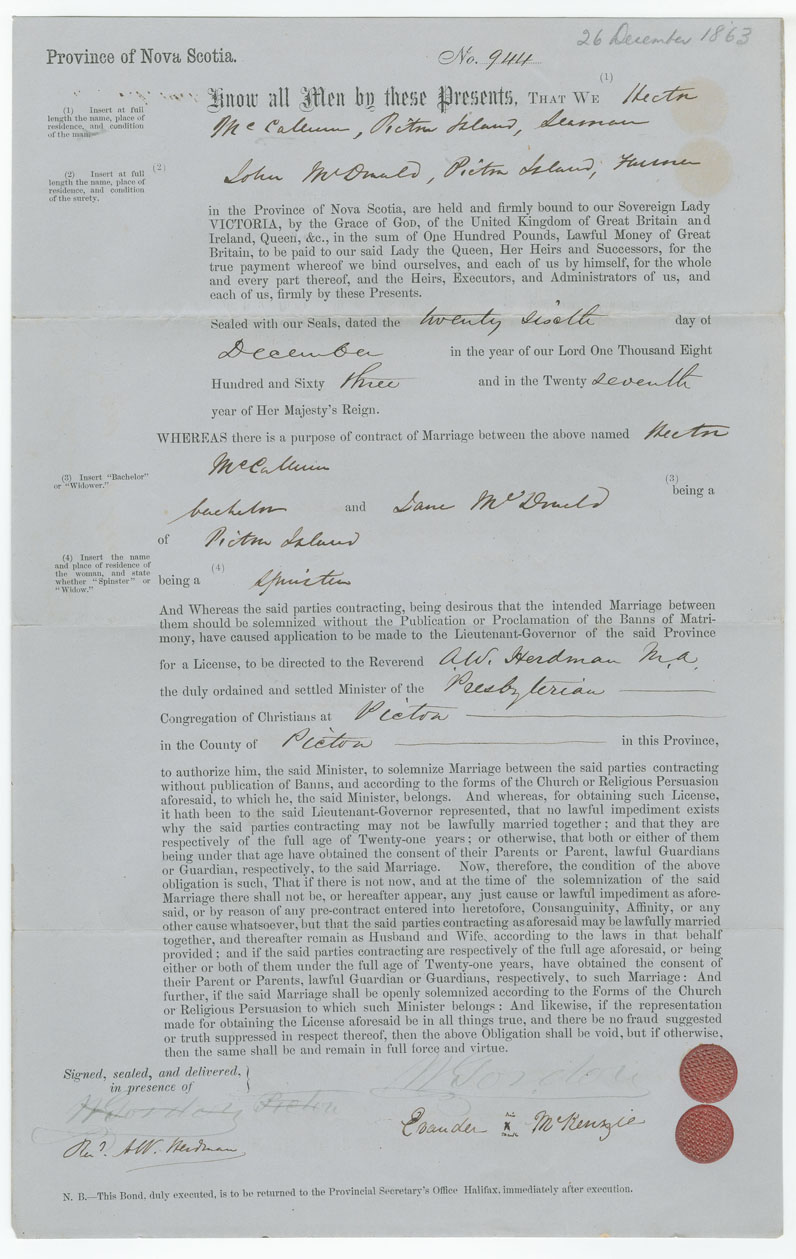 26 December 1863
Province of Nova Scotia.
No. 944
(1)
Know all Men by these Presents, THAT WE Hector
(1) Insert at full
length the name, place of
residence, and condition
of the man.
McCallum, Pictou Island, Seaman
(2)
(2) Insert at full
length the name, place of
residence, and condition
of the surety.
John McDonald, Pictou Island, Farmer
in the Province of Nova Scotia, are held and firmly bound to our Sovereign Lady
VICTORIA, by the Grace of GOD, of the United Kingdom of Great Britain and
Ireland, Queen, &c., in the sum of One Hundred Pounds, Lawful Money of Great
Britain, to be paid to our said Lady the Queen, Her Heirs and Successors, for the
true payment whereof we bind ourselves, and each of us by himself, for the whole
and every part thereof, and the Heirs, Executors, and Administrators of us, and
each of us, firmly by these Presents.
Sealed with our Seals, dated the twenty sixth day of
December in the year of our Lord One Thousand Eight
Hundred and Sixty three and in the Twenty seventh
year of Her Majesty's Reign.
WHEREAS there is a purpose of contract of Marriage between the above named Hector
McCallum
(3) Insert "Bachelor"
or "Widower."
(3)
being a
bachelor and Jane McDonald
of Pictou Island
(4) Insert the name
and place of residence of
the woman, and state
whether "Spinster" or
"Widow."
(4)
being a spinster
And Whereas the said parties contracting, being desirous that the intended Marriage between
them should be solemnized without the Publication or Proclamation of the Banns of Matri-
mony, have caused application to be made to the Lieutenant-Governor of the said Province
for a License, to be directed to the Reverend A.W. Herdman M.A.
the duly ordained and settled Minister of the Presbyterian
Congregation of Christians at Pictou
in the County of Pictou in this Province,
to authorize him, the said Minister, to solemnize Marriage between the said parties contracting
without publication of Banns, and according to the forms of the Church or Religious Persuasion
aforesaid, to which he, the said Minister, belongs. And whereas, for obtaining such License,
it hath been to the said Lieutenant-Governor represented, that no lawful impediment exists
why the said parties contracting may not be lawfully married together; and that they are
respectively of the full age of Twenty-one years; or otherwise, that both or either of them
being under that age have obtained the consent of their Parents or Parent, lawful Guardians
or Guardian, respectively, to the said Marriage. Now, therefore, the condition of the above
obligation is such, That if there is not now, and at the time of the solemnization of the said
Marriage there shall not be, or hereafter appear, any just cause or lawful impediment as afore-
said, or by reason of any pre-contract entered into heretofore, Consanguinity, Affinity, or any
other cause whatsoever, but that the said parties contracting as aforesaid may be lawfully married
together, and thereafter remain as Husband and Wife, according to the laws in that behalf
provided; and if the said parties contracting are respectively of the full age aforesaid, or being
either or both of them under the full age of Twenty-one years, have obtained the consent of
their Parent or Parents, lawful Guardian or Guardians, respectively, to such Marriage: And
further, if the said Marriage shall be openly solemnized according to the Forms of the Church
or Religious Persuasion to which such Minister belongs: And likewise, if the representation
made for obtaining the License aforesaid be in all things true, and there be no fraud suggested
or truth suppressed in respect thereof, then the above Obligation shall be void, but if otherwise,
then the same shall be and remain in full force and virtue.
Signed, sealed, and delivered,
in presence of
Pictou
his
Evander X McKenzie
mark
Revd. A.W. Herdman
N. B.—This Bond, duly executed, is to be returned to the Provincial Secretary's Office Halifax, immediately after execution.